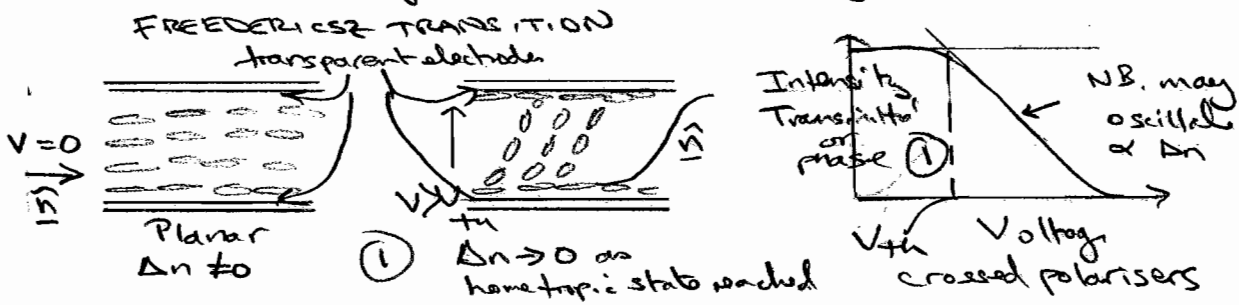 FREEDERICSZ TRANSITION
transparent electrodes
V=0
n
Planar
Δn ≠ 0
①
V>Vth
n̂
Δn → 0 as
homeotropic state reached
Intensity
Transmitted
or
phase ①
NB. may
oscillate
∝ Δn
Vth
Voltage
crossed polarisers